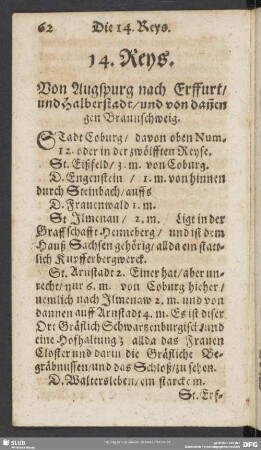 62 Die 14. Reys.
14. Reys.
Von Augspurg nach Erffurt/
und Halberstadt/und von dañen
gen Braunschweig.
STadt Coburg / davon oben Num.
12. oder in der zwölfften Reyse.
St. Eißfeld/ 3. m. von Coburg.
D. Engenstein / 1. m. von hinnen
durch Steinbach/auffs
D. Frauenwald 1. m.
St Ilmenau / 2. m. Ligt in der
Graffschafft Henneberg / und ist dem
Hauß Sachsen gehörig/ allda ein statt-
lich Kupfferbergwerck.
St. Arnstadt 2. Einer hat/ aber un-
recht/ nur 6. m. von Coburg hieher/
nemlich nach Ilmenaw 2. m. und von
dannen auff Arnstadt 4. m. Es ist diser
Ort Gräflich Schwartzenburgisch/und
eine Hofhaltung; allda das Frauen
Closter und darin die Gräfliche Be-
gräbnussen/und das Schloß/zu sehen.
D. Waltersleben/ ein starcke m.
St. Erf-
SLUB